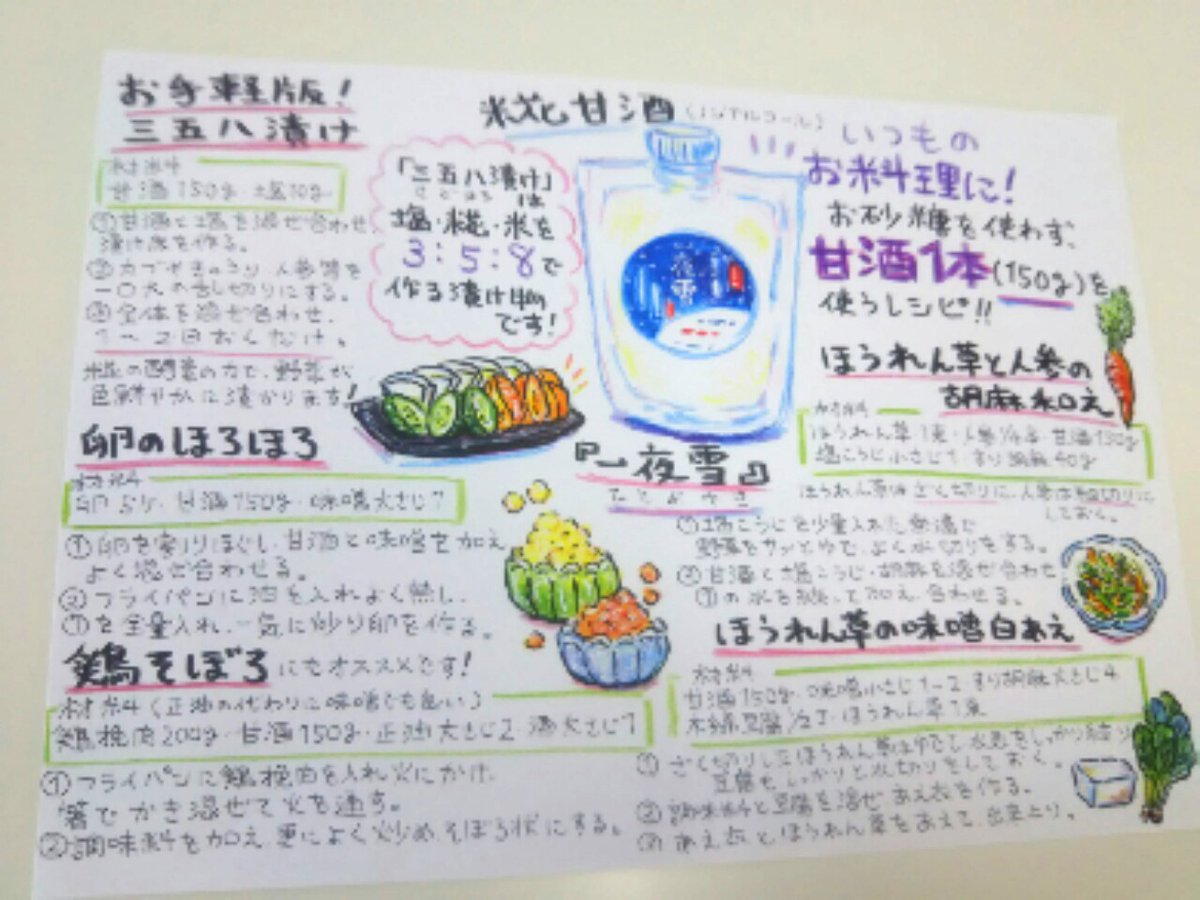 お手軽版!
三五八漬け
材料
甘酒150g・塩30g
①甘酒と塩を混ぜ合わせ
漬け床を作る。
②カブやきゅうり、人参等を
一口大の乱切りにする。
③全体を混ぜ合わせ、
1〜2日おくだけ。
糀の酵素の力で、野菜が
色鮮やかに漬かります!
「三五八漬け」
は
塩・糀・米を
3:5:8で
作る漬け物
です!
糀甘酒(ノンアルコール)
一夜雪
『一夜雪』
ひとよゆき
いつもの
お料理に!
お砂糖を使わず、
甘酒1本(150g)を
使うレシピ!!
卵のほろほろ
材料
卵5ケ・甘酒150g・味噌大さじ1
①卵を割りほぐし、甘酒と味噌を加え
よく混ぜ合わせる。
②フライパンに油を入れよく熱し、
①を全量入れ、一気に炒り卵を作る。
鶏そぼろにもオススメです!
材料(正油の代わりに味噌でも良い)
鶏挽肉200g・甘酒150g・正油大さじ2・酒大さじ1
①フライパンに鶏挽肉を入れ火にかけ、
箸でかき混ぜて火を通す。
②調味料を加え、更によく炒め、そぼろ状にする。
ほうれん草と人参の
胡麻和え
材料
ほうれん草・1束・人参1/4本・甘酒150g
塩こうじ小さじ1・すり胡麻40g
ほうれん草はざく切りに、人参は細切りに
しておく。
①塩こうじを少量入れた熱湯で
野菜をサッとゆで、よく水切りをする。
②甘酒と塩こうじ・胡麻を混ぜ合わせ
①の水を絞って加え、合わせる。
ほうれん草の味噌白あえ
材料
甘酒150g・味噌小さじ1〜2・すり胡麻大さじ4
木綿豆腐・ほうれん草1束
①ざく切りしたほうれん草はゆでて水気をしっかり絞り
豆腐もしっかりと水切りをしておく。
②調味料と豆腐を混ぜ、あえ衣を作る。
③あえ衣とほうれん草をあえて、出来上り。